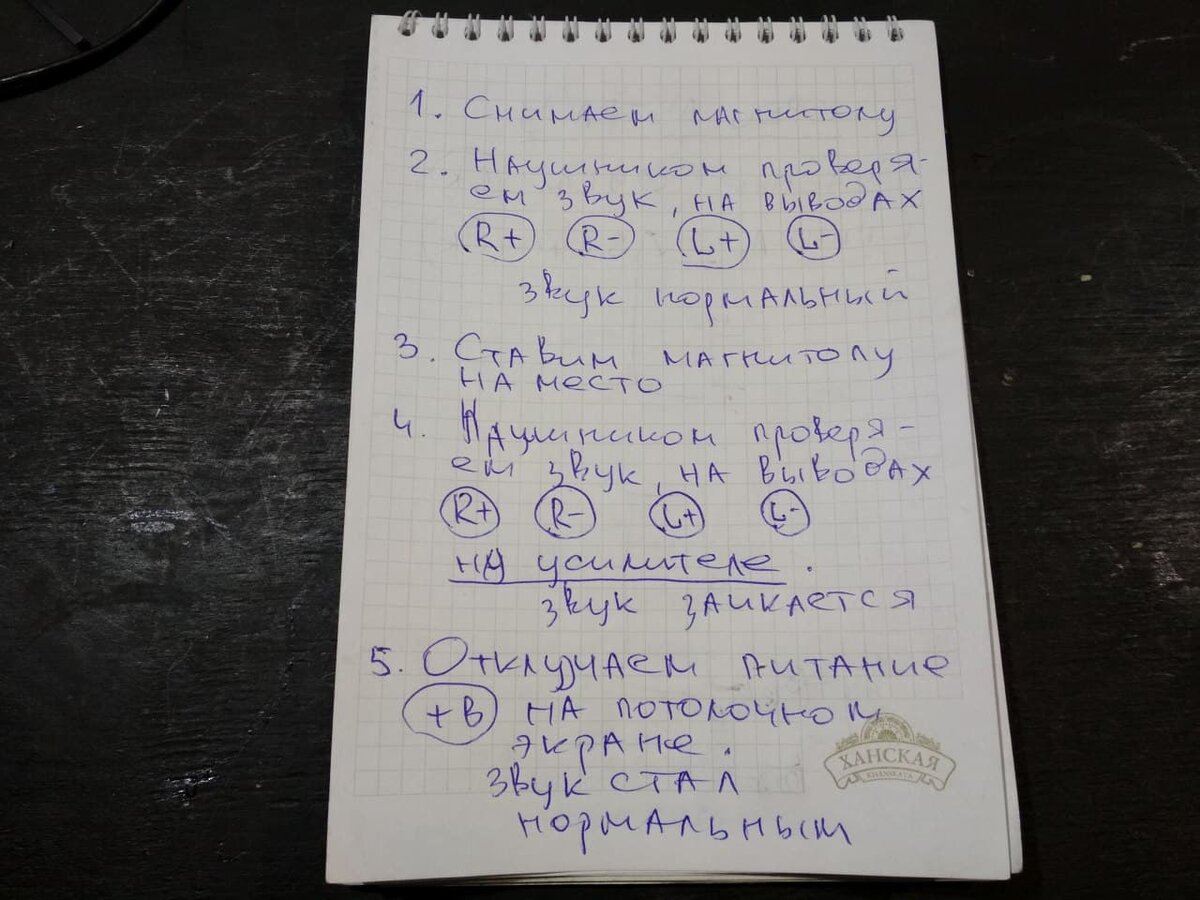 1. Снимаем магнитолу
2. Наушником проверя-
ем звук, на выводах
R+ R- L+ L-
звук нормальный
3. Ставим магнитолу
на место
4. Наушником проверя-
ем звук, на выводах
R+ R- L+ L-
на усилителе.
звук заикается
5. Отключаем питание
+B на потолочном
экране.
звук стал
нормальным
ХАНСКАЯ
KHANSKAYA